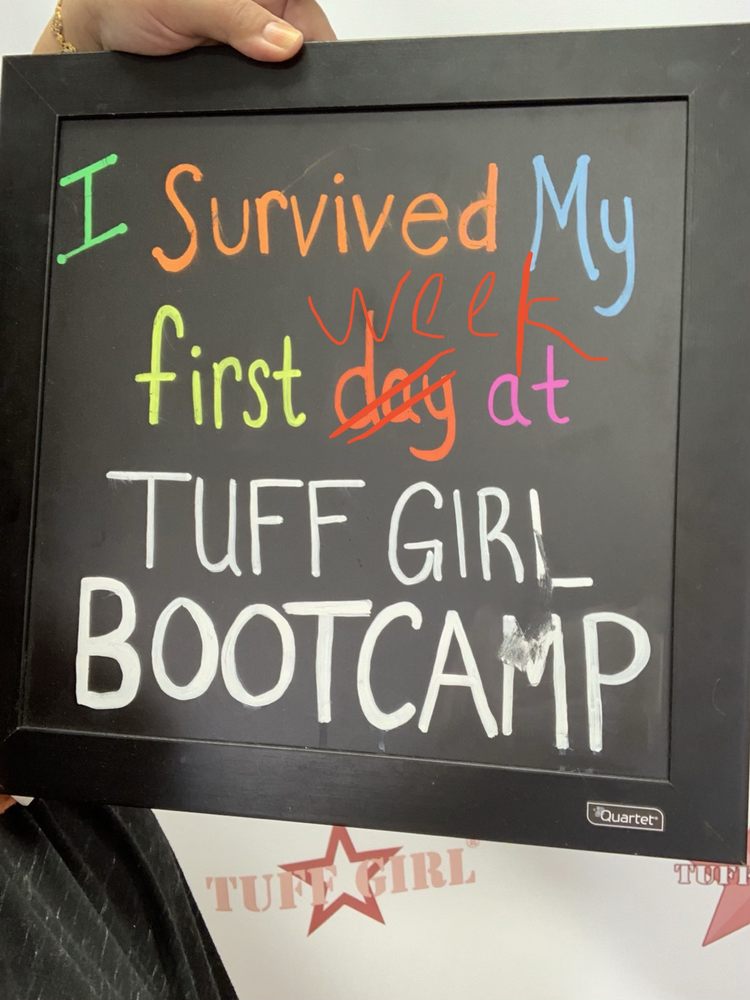 I Survived My
week
first day at
TUFF GIRL
BOOTCAMP
Quartet
TUFF GIRL®
TUFF